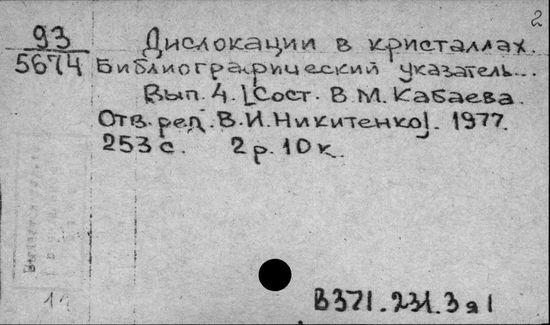 2
93 Дислокации в кристаллах.
5674 Библиографический указатель...
Вып. 4. [Сост. В.М. Кабаева.
Отв. ред. В.И. Никитенко]. 1977.
253 с. 2 р. 10 к.
В371.231.3я1